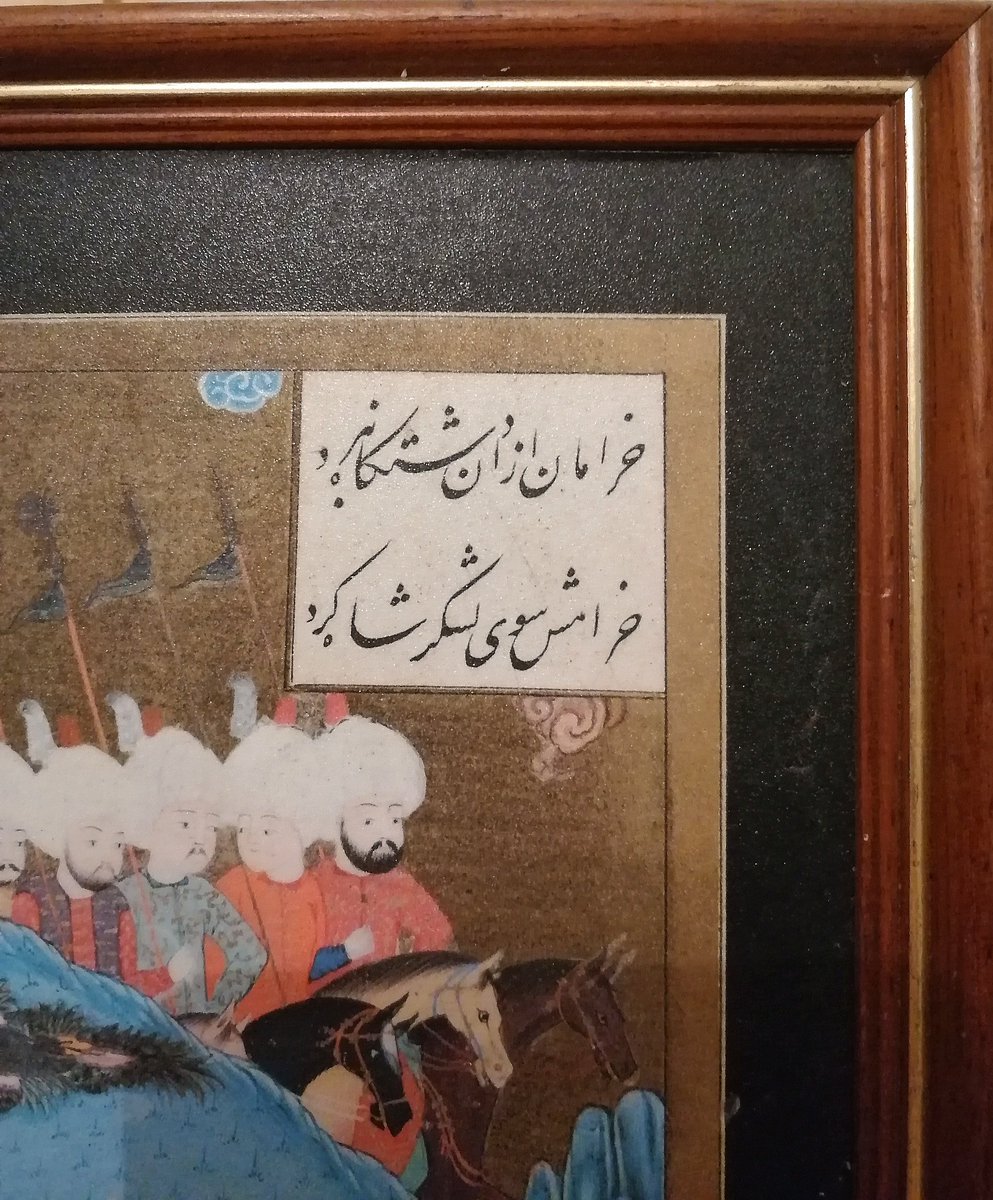 خرامان ازان دشتکاه نبرد
خرامش سوی لشکر شاه کرد